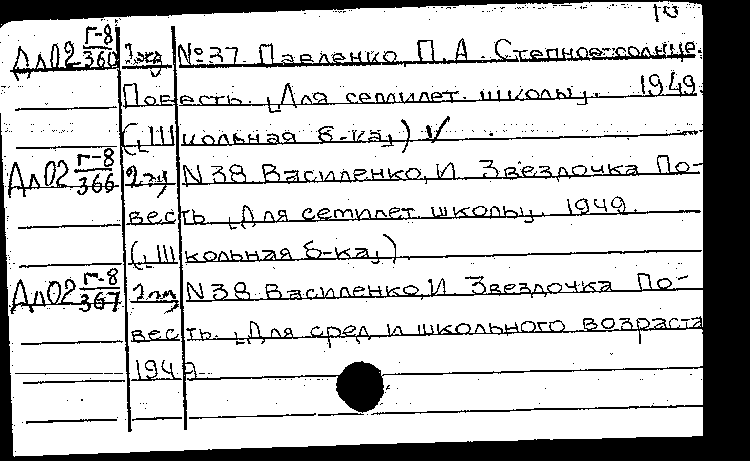 10
Дл02 Г-8/360 2 экз №37. Павленко, П.А. Степное солнце.
Повесть. [Для семилет. школы]. 1949.
([Школьная б-ка]) V
Дл02 Г-8/366 2 экз N 38 Василенко, И. Звездочка По-
весть [Для семилет. школы]. 1949.
([Школьная б-ка])
Дл02 Г-8/367 N 38. Василенко, И Звездочка По-
весть. [Для сред и школьного возраста
1949